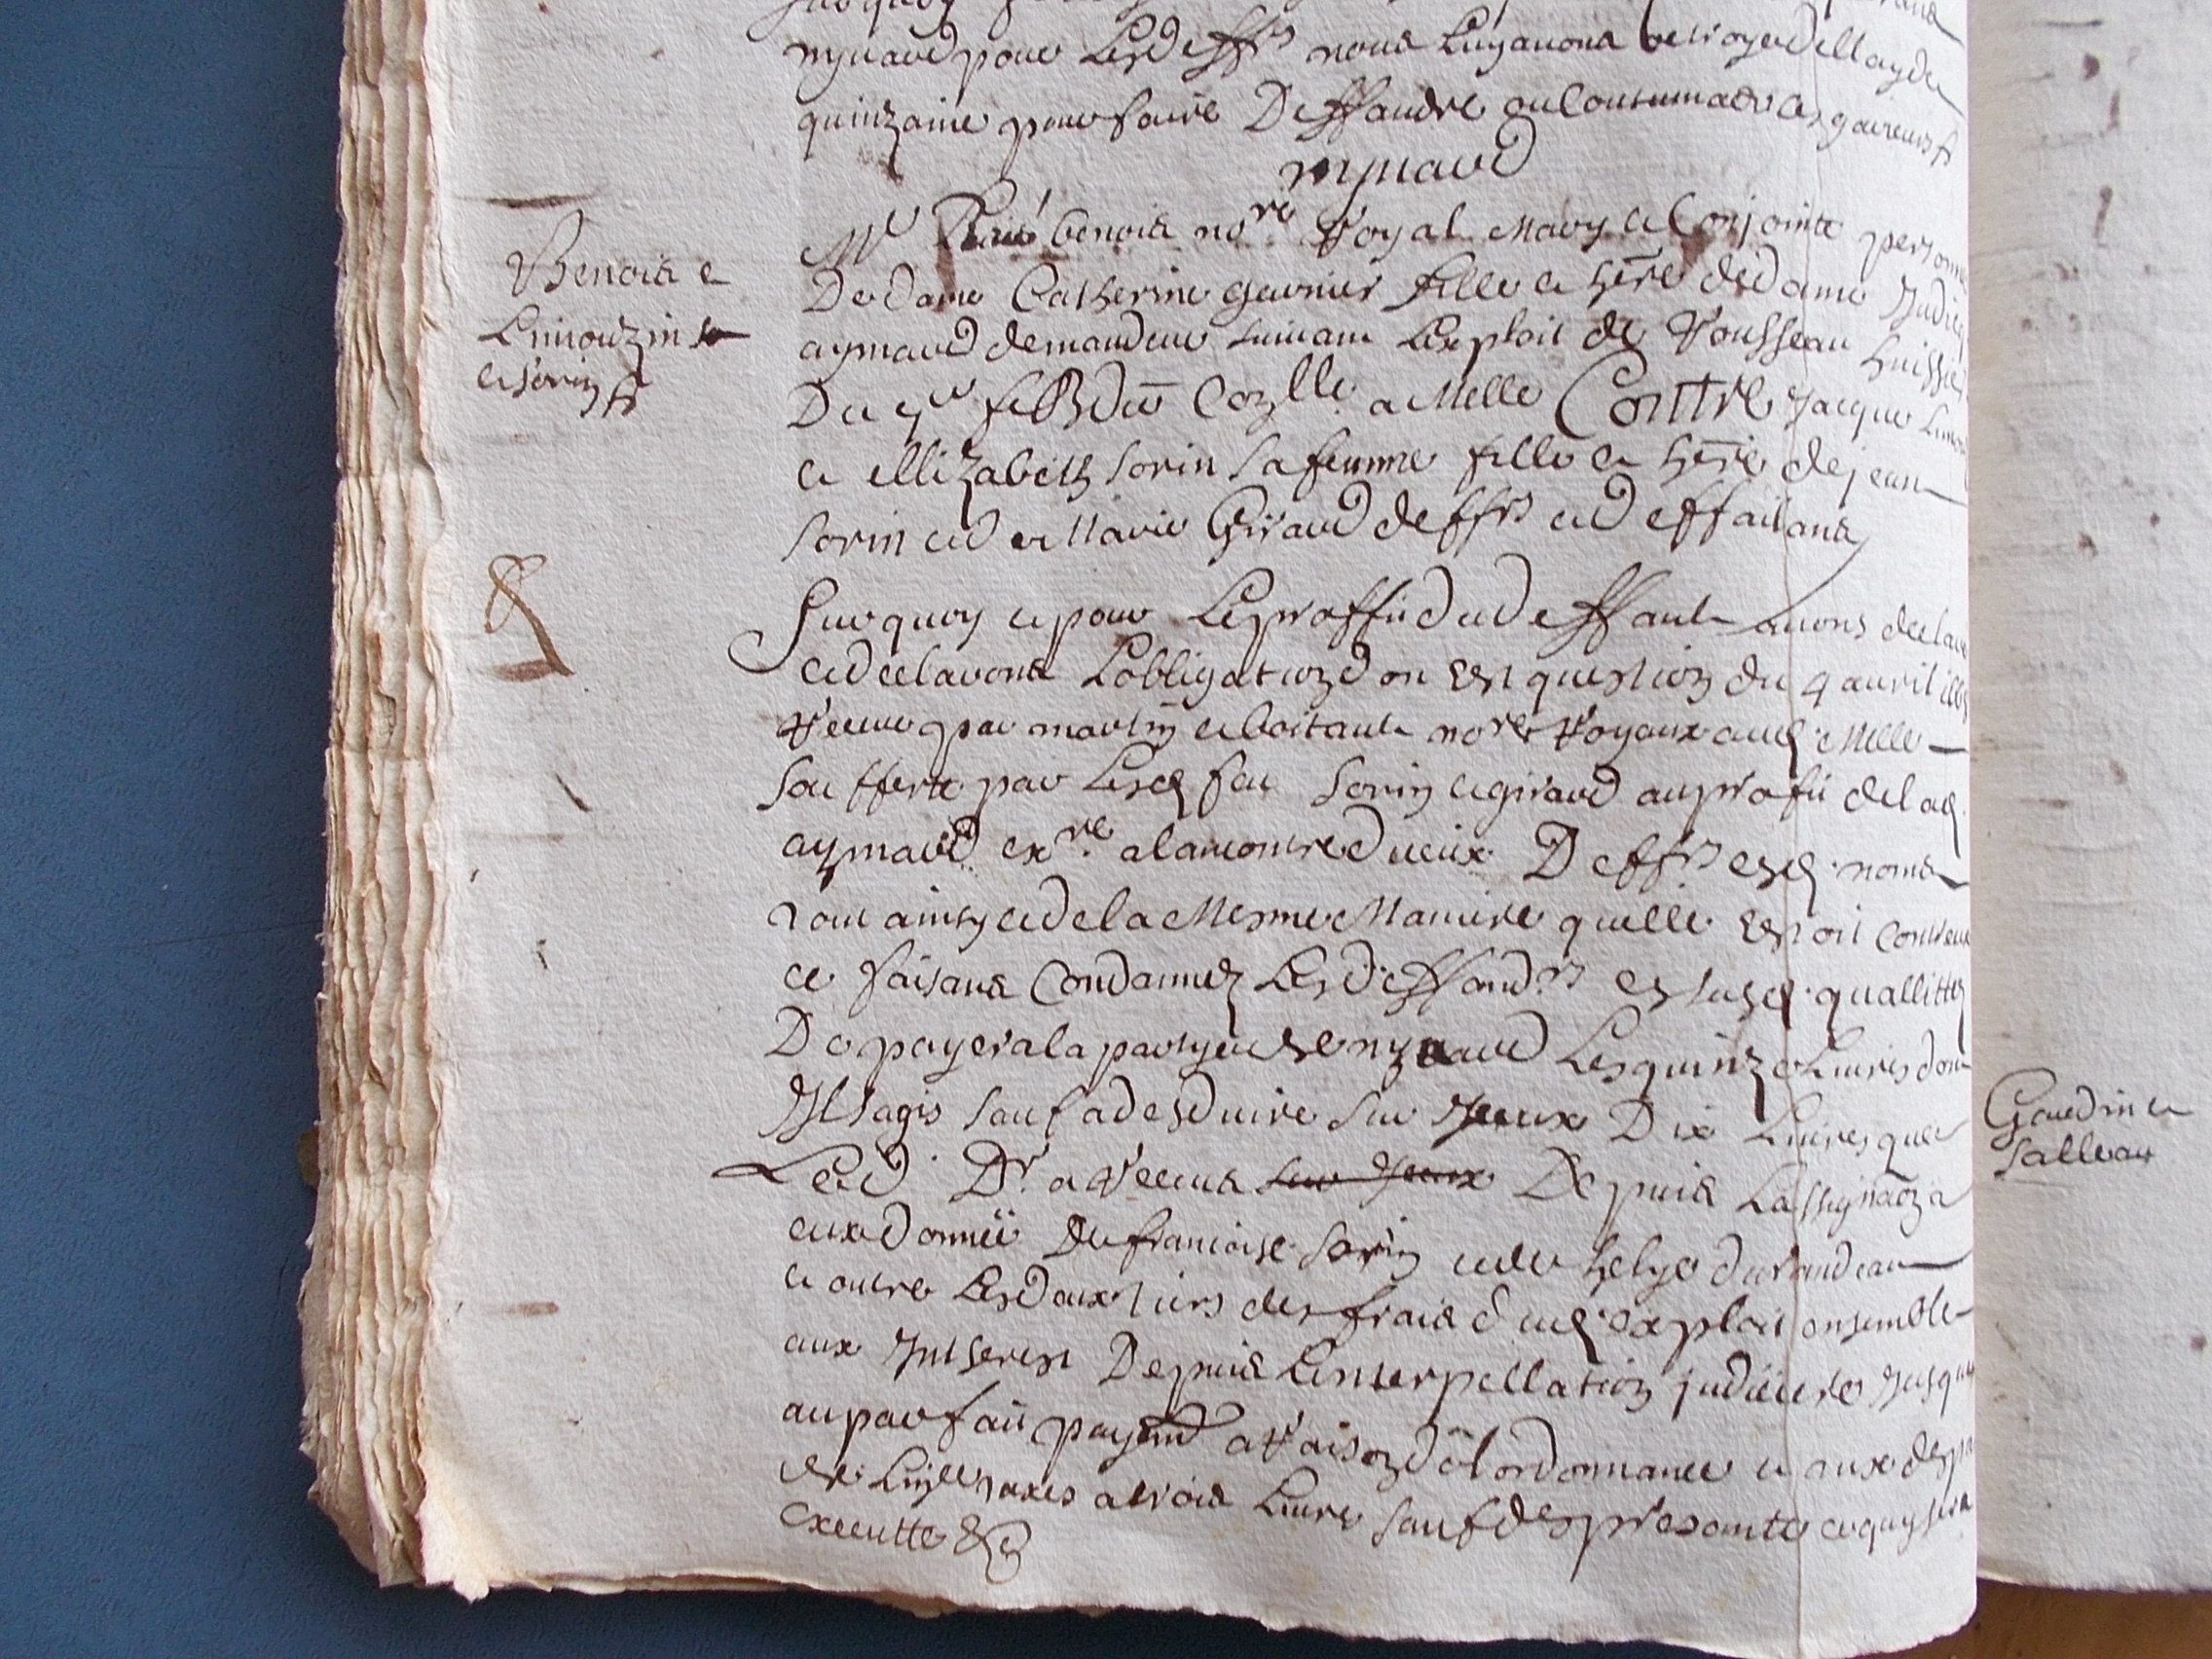 mynaud pour Lesd deffrs nous Luy avons octroyé dellay de
quinzaine pour faire Deffandre
mynaud
Benoist et
Limouzin
et sorin
Me benoist nore Royal Mary et Conjointe personne
De dame Catherine garnier fille et here de dame Judicq
aymaud demandeur suivant L'exploit de Rousseau huissier
Du Con.lle a Melle Contre Jacque Limou
et ellizabeth sorin sa femme fille et here de jean
sorin et de Marie Giraud deffrs et deffailans
Sur quoy et pour Le proffit dud deffaut avons declaré
et declarons L'obligation don est question du 4 avril
Receue par martin et boitault nores Royaux aud Melle
soufferte par Lesd feu sorin et giraud au profit de lad
aymaud exre a lancontre diceux Deffrs esd noms
tout ainsy et de la Mesme Maniere quelle estoit contre eux
ce faisant Condannez Lesd deffandrs esdusd quallittez
De payer a la partye de mynaud Les quinze Livres dont
Il sagis sauf a desduire sur Iceux Dix Livres que
Led Dr a Receus sur Iceux Depuis L'assignaon a
eux donnéé De francoise sorin et de helye durandeau
et outre Les deux tiers des frais dud exploit ensemble
aux Intherest Depuis L'interpellation judiciere Jusqua
au parfait payemt a Raison de l'ordonnance et aux despans
de L'instance taxes a trois Livre sauf des presante ce quy sera
executté &c
Gaudin et
salleau